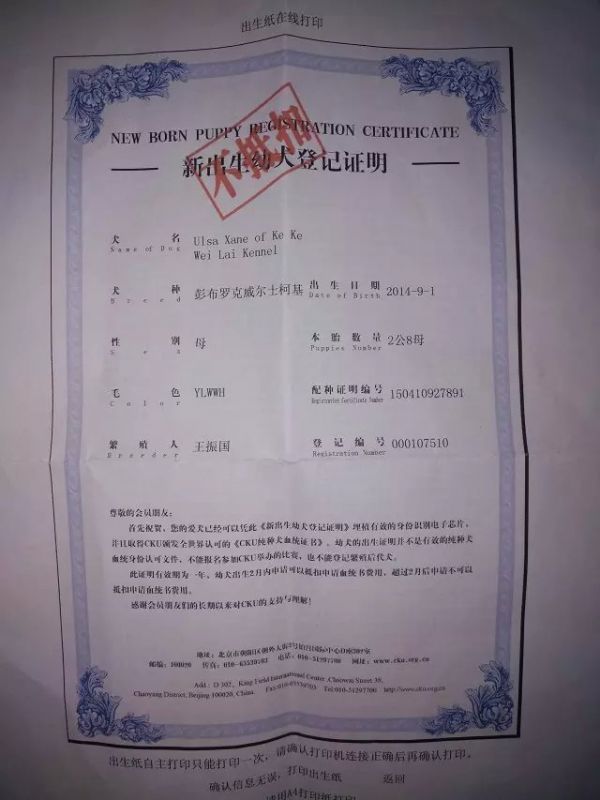 出生纸在线打印
NEW BORN PUPPY REGISTRATION CERTIFICATE
不抵扣
新出生幼犬登记证明
犬名 Ulsa Xane of Ke Ke
Name of Dog Wei Lai Kennel
犬种 彭布罗克威尔士柯基 出生日期 2014-9-1
Breed Date of Birth
性别 母 本胎数量 2公8母
Sex Puppies Number
毛色 YLWWH 配种证明编号 150410927891
Color Registration Certificate Number
繁殖人 王振国 登记编号 000107510
Breeder Registration Number
尊敬的会员朋友:
首先祝贺,您的爱犬已经可以凭此《新出生幼犬登记证明》埋植有效的身份识别电子芯片,
并且取得CKU颁发全世界认可的《CKU纯种犬血统证书》。幼犬的出生证明并不是有效的纯种犬
血统身份认可文件,不能报名参加CKU举办的比赛,也不能登记繁殖后代犬。
此证明有效期为一年,幼犬出生2月内申请可以抵扣申请血统书费用,超过2月后申请不可以
抵扣申请血统书费用。
感谢会员朋友们的长期以来对CKU的支持与理解!
地址:北京市朝阳区朝外大街
邮编:100020 传真:010-65539703 电话:010-51297700 网址:www.cku.org.cn
Add: D 302, King Field International Center, Chaowai Street 39,
Chaoyang District, Beijing 100020, China. Fax:010-65539703 Tel:010-51297700 http://www.cku.org.cn
出生纸自主打印只能打印一次,请确认打印机连接正确后再确认打印。
确认信息无误,打印出生纸 返回
用A4打印纸打印